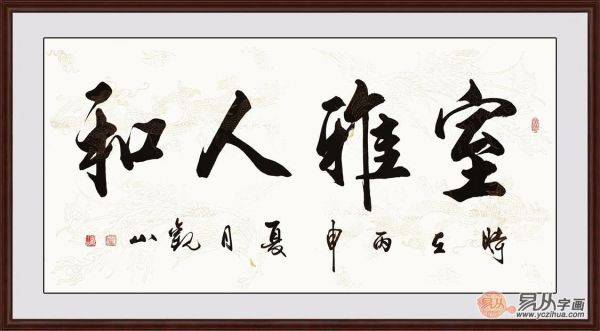 室雅人和
時在丙申夏月觀山
易从字画
www.yczihua.com